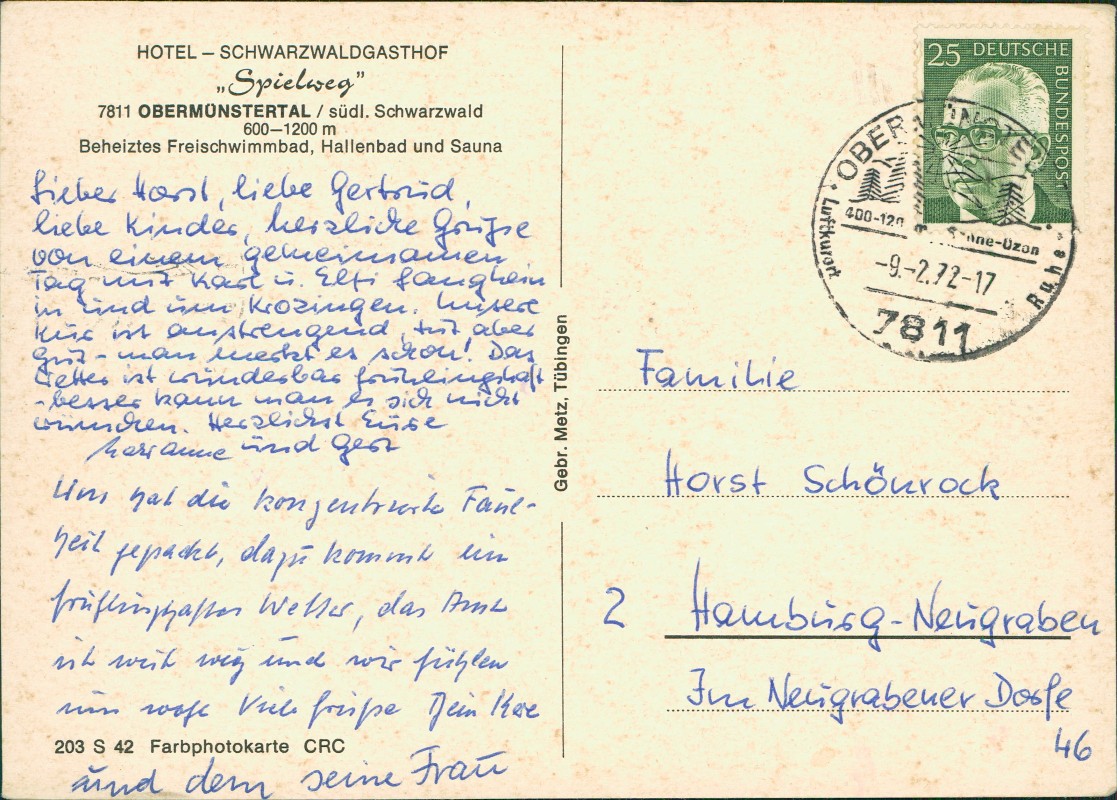 HOTEL – SCHWARZWALDGASTHOF
„Spielweg"
7811 OBERMÜNSTERTAL / südl. Schwarzwald
600–1200 m
Beheiztes Freischwimmbad, Hallenbad und Sauna
Lieber Horst, liebe Gertrud,
liebe Kinder, herzliche Grüße
von einem gemeinsamen
Tag mit Karl u. Elfi Langhein
in und um Krozingen. Unsere
Kur ist anstrengend, tut aber
gut – man merkt es schon! Das
Wetter ist wunderbar frühlingshaft
– besser kann man es sich nicht
wünschen. Herzlichst Eure
Marianne und Gert
Uns hat die konzentrierte Faul-
heit gepackt, dazu kommt ein
frühlingshaftes Wetter, das Amt
ist weit weg und wir fühlen
uns wohl Viele Grüße Dein
und dem seine Frau
203 S 42 Farbphotokarte CRC
Gebr. Metz, Tübingen
25 DEUTSCHE BUNDESPOST
Luftkurort
400-120
-Ozon
Ruhe
-9.-2.72-17
7811
Familie
Horst Schönrock
2 Hamburg-Neugraben
Im Neugrabener Dorfe
46